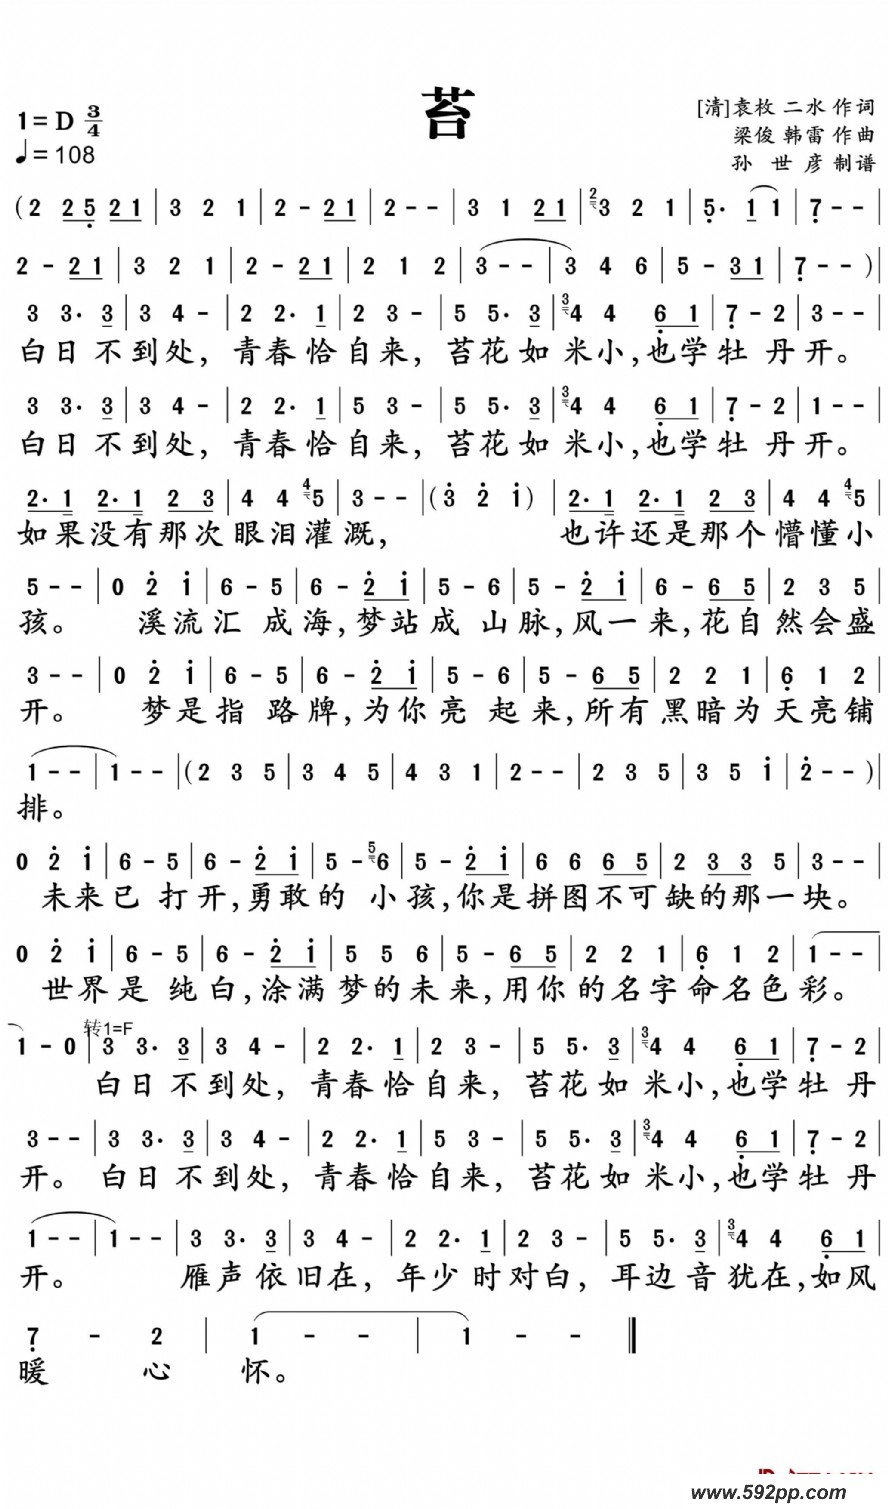 苔
1=D 3/4
♩=108
[清]袁枚 二水 作词
梁俊 韩雷 作曲
孙 世 彦 制谱
(2 2 5 2 1 | 3 2 1 | 2 - 2 1 | 2 - - | 3 1 2 1 | 2 3 2 1 | 5· 1 1 | 7 - - |
2 - 2 1 | 3 2 1 | 2 - 2 1 | 2 1 2 | 3 - - | 3 4 6 | 5 - 3 1 | 7 - - )|
3 3· 3 | 3 4 - | 2 2· 1 | 2 3 - | 5 5· 5 | 3 4 4 6 1 | 7 - 2 | 3 - - |
白日 不到处, 青春恰自来, 苔花如米小,也学牡 丹开。
3 3· 3 | 3 4 - | 2 2· 1 | 5 3 - | 5 5· 5 | 3 4 4 6 1 | 7 - 2 | 1 - - |
白日 不到处, 青春恰自来, 苔花如米小,也学牡 丹开。
2· 1 2· 1 2 3 | 4 4 4 5 | 3 - - |( 3 2 1 )| 2· 1 2· 1 2 3 | 4 4 4 5 |
如果没有那次眼泪灌溉, 也许还是那个懵懂小
5 - - | 0 2 1 | 6 - 5 | 6 - 2 1 | 5 - 6 | 5 - 2 1 | 6 - 6 5 | 2 3 5 |
孩。 溪流汇 成海,梦站成 山脉,风一来,花自然会盛
3 - - | 0 2 1 | 6 - 5 | 6 - 2 1 | 5 - 6 | 5 - 6 5 | 2 2 1 | 6 1 2 |
开。 梦是指 路牌,为你亮 起来,所有黑暗为天亮铺
1 - - | 1 - - |( 2 3 5 | 3 4 5 | 4 3 1 | 2 - - | 2 3 5 | 3 5 1 | 2 - - )|
排。
0 2 1 | 6 - 5 | 6 - 2 1 | 5 - 5 6 | 5 - 2 1 | 6 6 6 5 | 2 3 3 5 | 3 - - |
未来已 打开,勇敢的 小孩,你是拼图不可缺的那一块。
0 2 1 | 6 - 5 | 6 - 2 1 | 5 5 6 | 5 - 6 5 | 2 2 1 | 6 1 2 | 1 - - |
世界是 纯白,涂满梦的未来,用你的名字命名色彩。
转1=F
1 - 0 | 3 3· 3 | 3 4 - | 2 2· 1 | 2 3 - | 5 5· 5 | 3 4 4 6 1 | 7 - 2 |
白日 不到处, 青春恰自来, 苔花如米小,也学牡 丹
3 - - | 3 3· 3 | 3 4 - | 2 2· 1 | 5 3 - | 5 5· 5 | 3 4 4 6 1 | 7 - 2 |
开。 白日 不到处, 青春恰自来, 苔花如米小,也学牡 丹
1 - - | 1 - - | 3 3· 3 | 3 4 - | 2 2· 1 | 2 3 - | 5 5· 5 | 3 4 4 6 1 |
开。 雁声依旧在, 年少时对白, 耳边音犹在,如风
7 - 2 | 1 - - | 1 - - ‖
暖 心 怀。
www.592pp.com